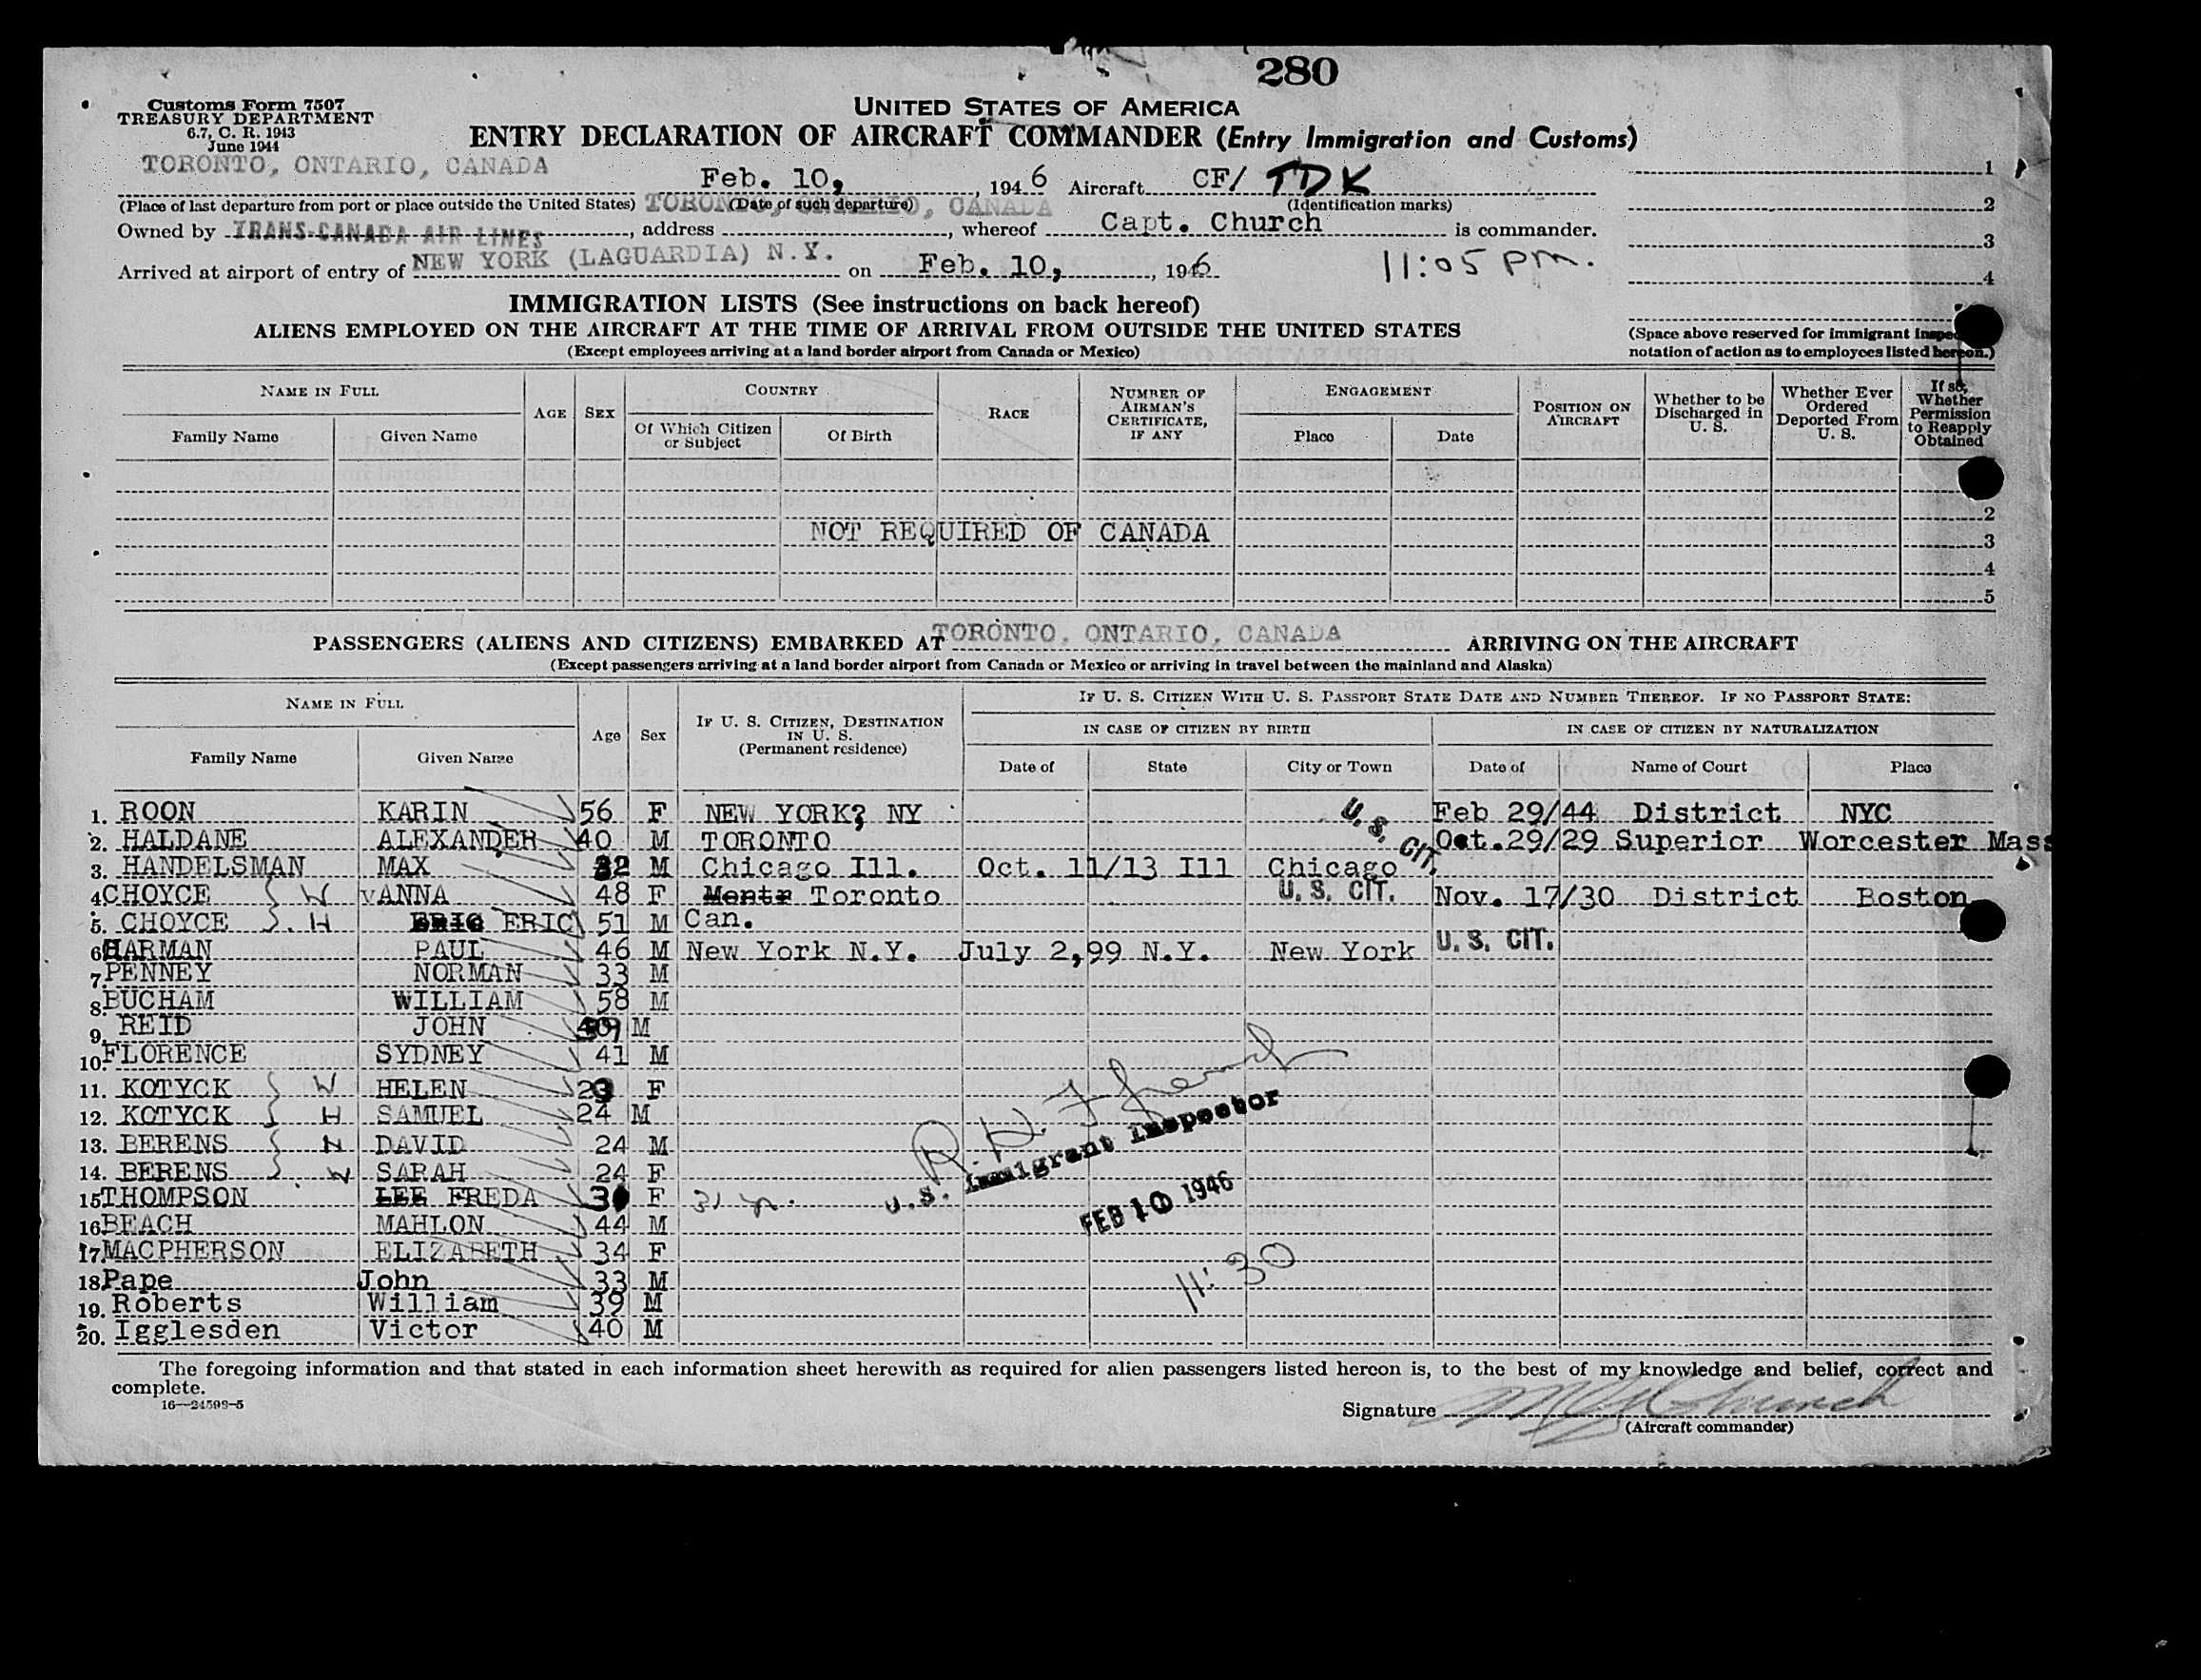 280
Customs Form 7507
TREASURY DEPARTMENT
6.7, C. R. 1943
June 1944
UNITED STATES OF AMERICA
ENTRY DECLARATION OF AIRCRAFT COMMANDER (Entry Immigration and Customs)
TORONTO, ONTARIO, CANADA Feb. 10, 1946 Aircraft CF/ TDK 1
(Place of last departure from port or place outside the United States) TORONTO, ONTARIO, CANADA (Date of such departure) (Identification marks) 2
Owned by TRANS-CANADA AIR LINES, address , whereof Capt. Church is commander. 3
Arrived at airport of entry of NEW YORK (LAGUARDIA) N.Y. on Feb. 10, 1946 11:05 pm. 4
IMMIGRATION LISTS (See instructions on back hereof)
ALIENS EMPLOYED ON THE AIRCRAFT AT THE TIME OF ARRIVAL FROM OUTSIDE THE UNITED STATES
(Except employees arriving at a land border airport from Canada or Mexico)
(Space above reserved for immigrant
notation of action as to employees listed hereon.)
NAME IN FULL AGE SEX COUNTRY RACE NUMBER OF AIRMAN'S CERTIFICATE, IF ANY ENGAGEMENT POSITION ON AIRCRAFT Whether to be Discharged in U. S. Whether Ever Ordered Deported From U. S. If so, Whether Permission to Reapply Obtained
Family Name Given Name Of Which Citizen or Subject Of Birth Place Date
2
NOT REQUIRED OF CANADA 3
4
5
PASSENGERS (ALIENS AND CITIZENS) EMBARKED AT TORONTO, ONTARIO, CANADA ARRIVING ON THE AIRCRAFT
(Except passengers arriving at a land border airport from Canada or Mexico or arriving in travel between the mainland and Alaska)
NAME IN FULL Age Sex IF U. S. CITIZEN, DESTINATION IN U. S. (Permanent residence) IF U. S. CITIZEN WITH U. S. PASSPORT STATE DATE AND NUMBER THEREOF. IF NO PASSPORT STATE:
IN CASE OF CITIZEN BY BIRTH IN CASE OF CITIZEN BY NATURALIZATION
Family Name Given Name Date of State City or Town Date of Name of Court Place
1. ROON KARIN 56 F NEW YORK? NY U. S. CIT. Feb 29/44 District NYC
2. HALDANE ALEXANDER 40 M TORONTO Oct.29/29 Superior Worcester Mass
3. HANDELSMAN MAX 32 M Chicago Ill. Oct. 11/13 Ill Chicago
4 CHOYCE W ANNA 48 F Toronto U. S. CIT. Nov. 17/30 District Boston
5. CHOYCE H ERIC 51 M Can.
6 HARMAN PAUL 46 M New York N.Y. July 2,99 N.Y. New York U. S. CIT.
7. PENNEY NORMAN 33 M
8. BUCHAM WILLIAM 58 M
9. REID JOHN M
10. FLORENCE SYDNEY 41 M
11. KOTYCK W HELEN 23 F
12. KOTYCK H SAMUEL 24 M
13. BERENS H DAVID 24 M
14. BERENS W SARAH 24 F
15 THOMPSON LEE FREDA F 31
16 BEACH MAHLON 44 M
17. MACPHERSON ELIZABETH 34 F
18 Pape John 33 M
19. Roberts William 39 M
20. Igglesden Victor 40 M
R. H.
U. S. Immigrant Inspector
FEB 10 1946
11:30
The foregoing information and that stated in each information sheet herewith as required for alien passengers listed hereon is, to the best of my knowledge and belief, correct and
complete.
16—24598-5
Signature Church
(Aircraft commander)